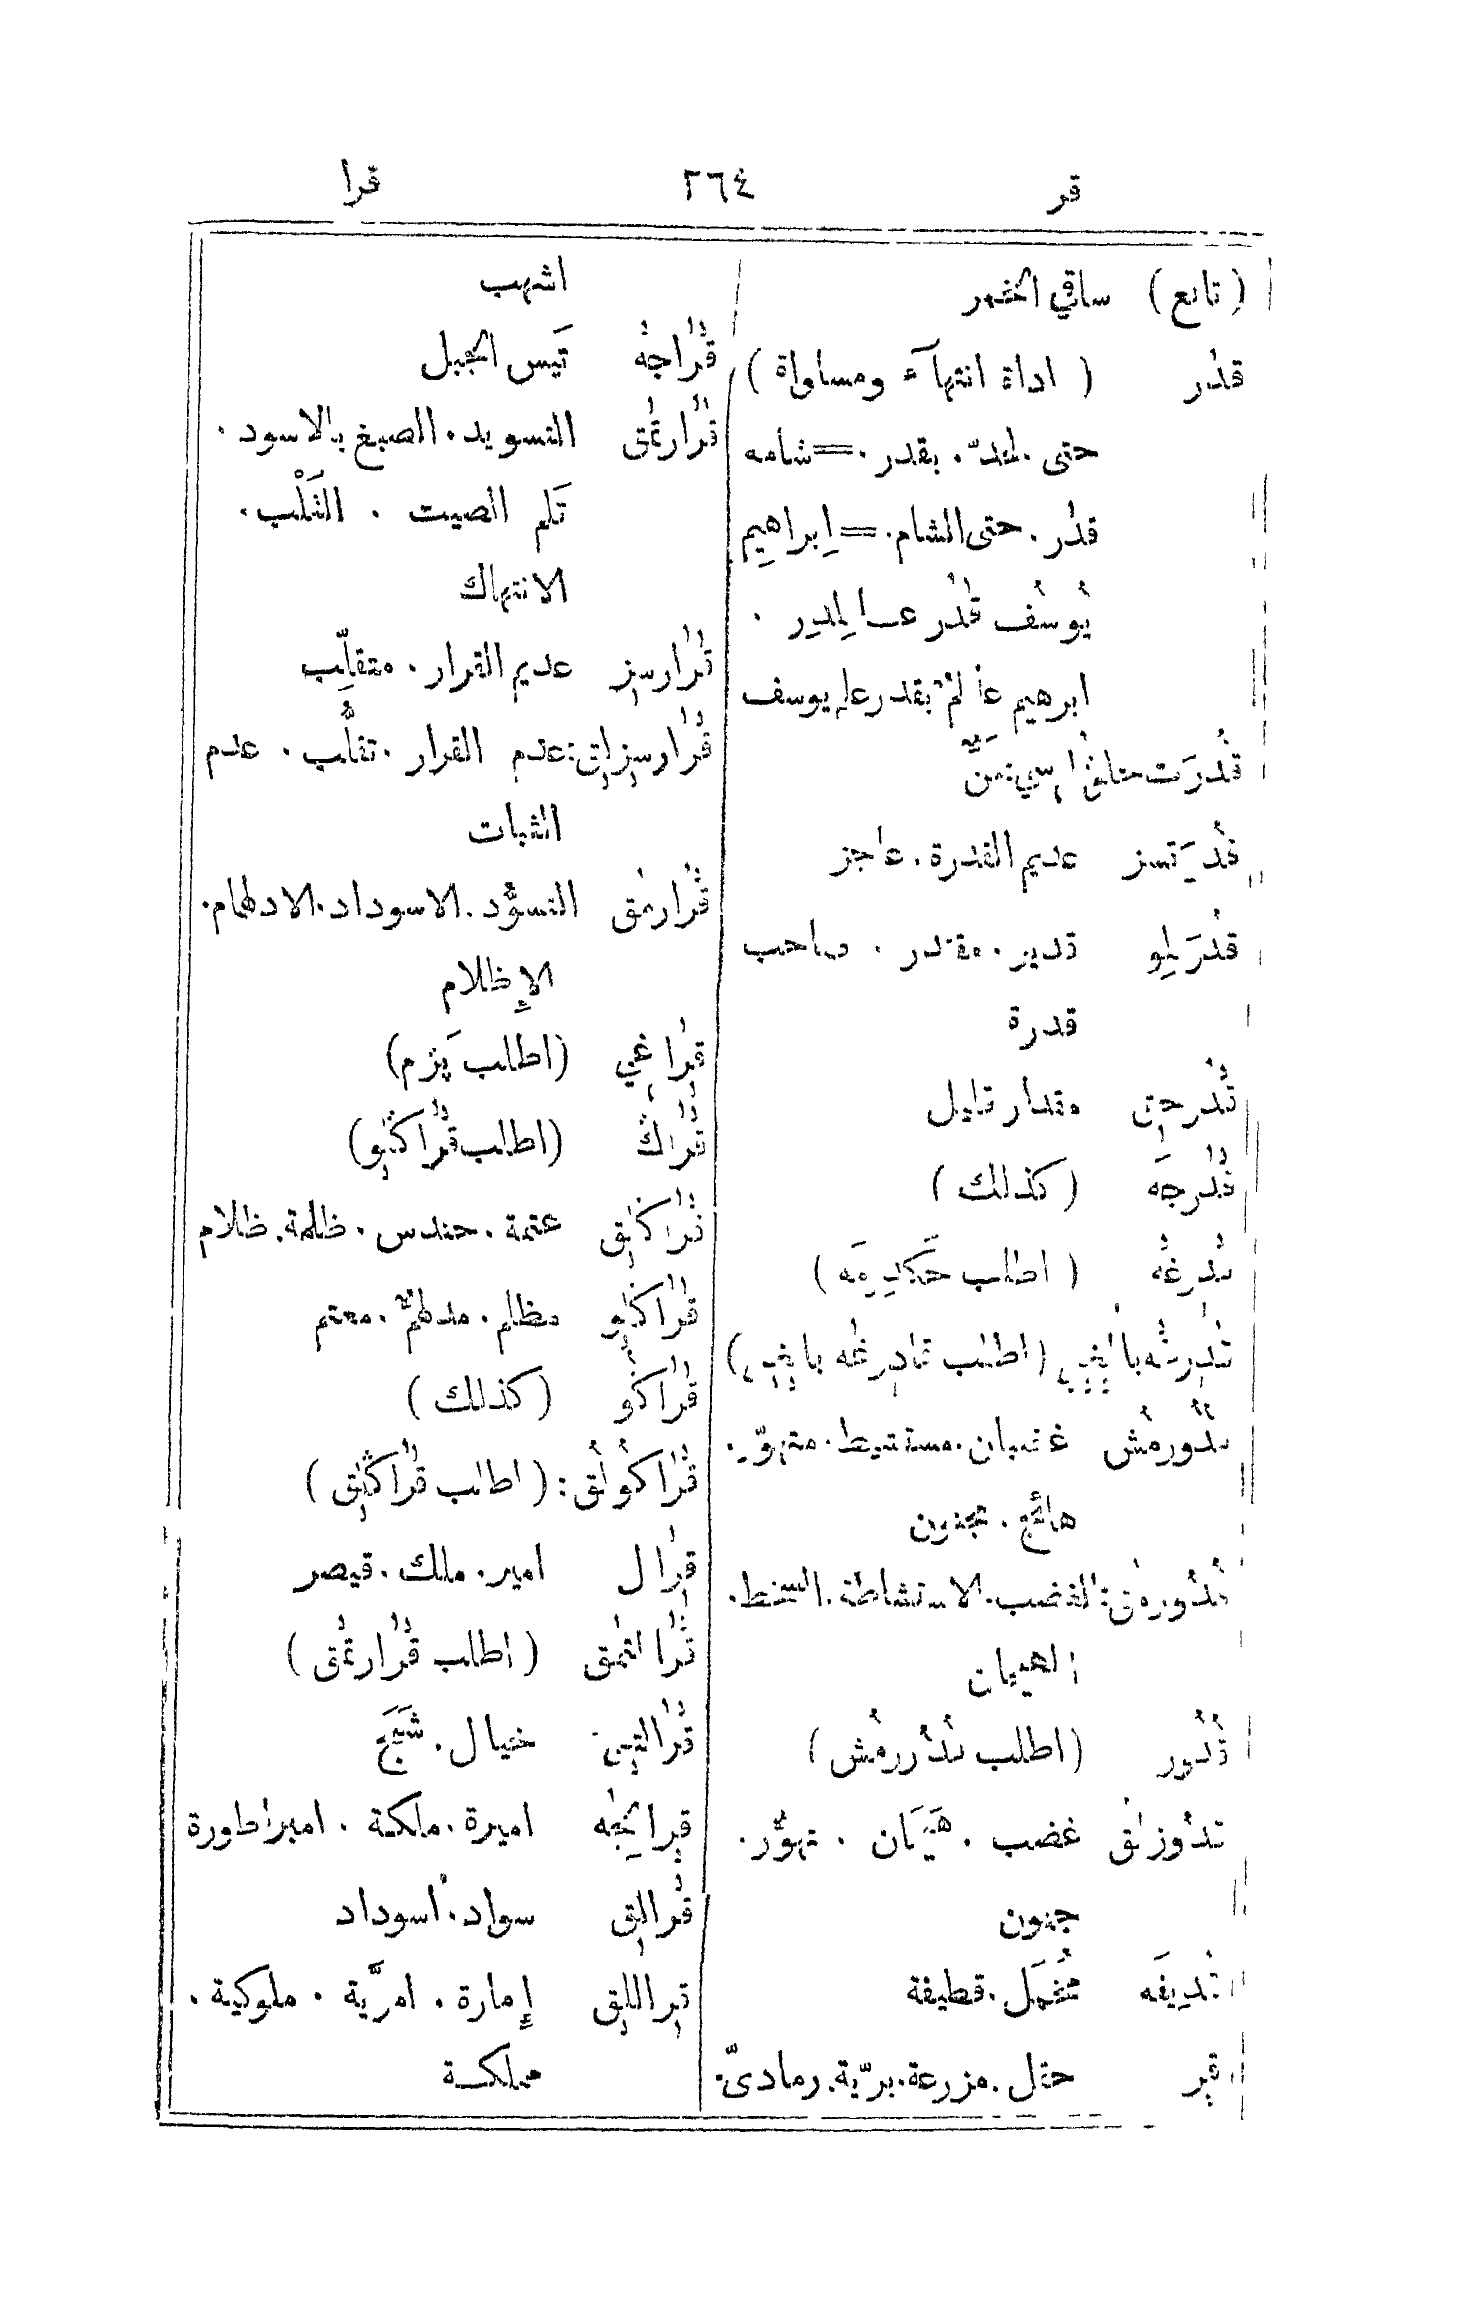 قر ٢٦٤ قرا
(تابع) ساقي الخمر
قدر ( اداة انتهآء ومساواة )
حتى . لحدّ . بقدر .=شامه
قدر . حتى الشام .=إبراهيم
يوسف قدر عالمدر .
ابرهيم عالم بقدر علم يوسف
قدرتسز عديم القدرة . عاجز
قدرتلو قدير . مقتدر . صاحب
قدرة
مقدار قليل
قدرجه (كذلك)
(اطلب حكديمه)
غضبان . مستشيط . متهوّر.
هائج . مجنون
الغضب . الاستشاطة . السخط.
الهيجان
(اطلب
غضب . هيجان . تهوّر .
جنون
قديفه مخمل . قطيفة
قير حقل . مزرعة . بريّة . رماديّ.
اشهب
قراجه تيس الجبل
قرارتمق التسويد . الصبغ بالاسود .
ثلم الصيت . الثلب .
الانتهاك
قرارسز عديم القرار . متقلّب
قرارسزلق: عدم القرار . تقلّب . عدم
الثبات
قرارمق التسوّد . الاسوداد . الادلهمام.
الإظلام
قراغي (اطلب
قراك (اطلب قراكلو)
قراكلق عتمة . حندس . ظلمة . ظلام
قراكلو مظلم . مدلهمّ . معتم
قراكو (كذلك)
قراكولق: (اطلب قراكلق)
قرال امير . ملك . قيصر
قرالتمق (اطلب قرارتمق)
قرالتي خيال . شبح
قراليجه اميرة . ملكة . امبراطورة
قرالق سواد . اسوداد
قراللق إمارة . امريّة . ملوكية .
مملكة